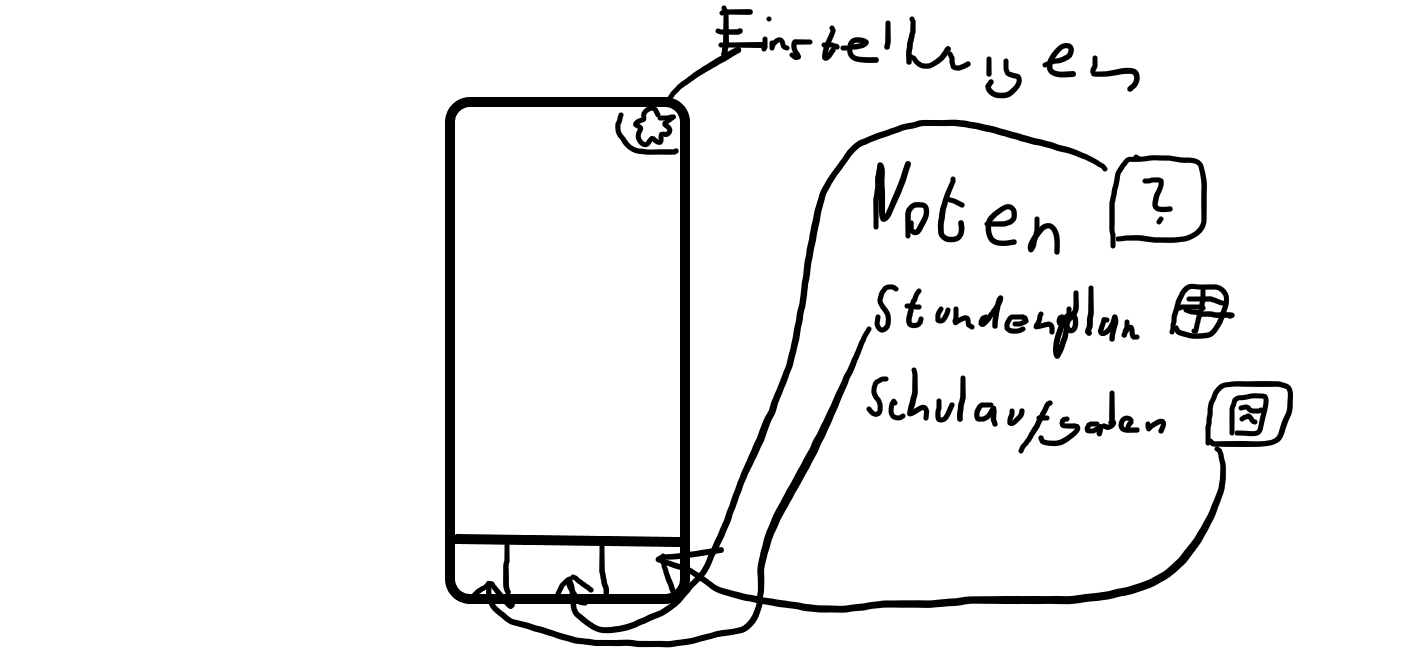 Einstellungen
Noten ?
Stundenplan
Schulaufgaben